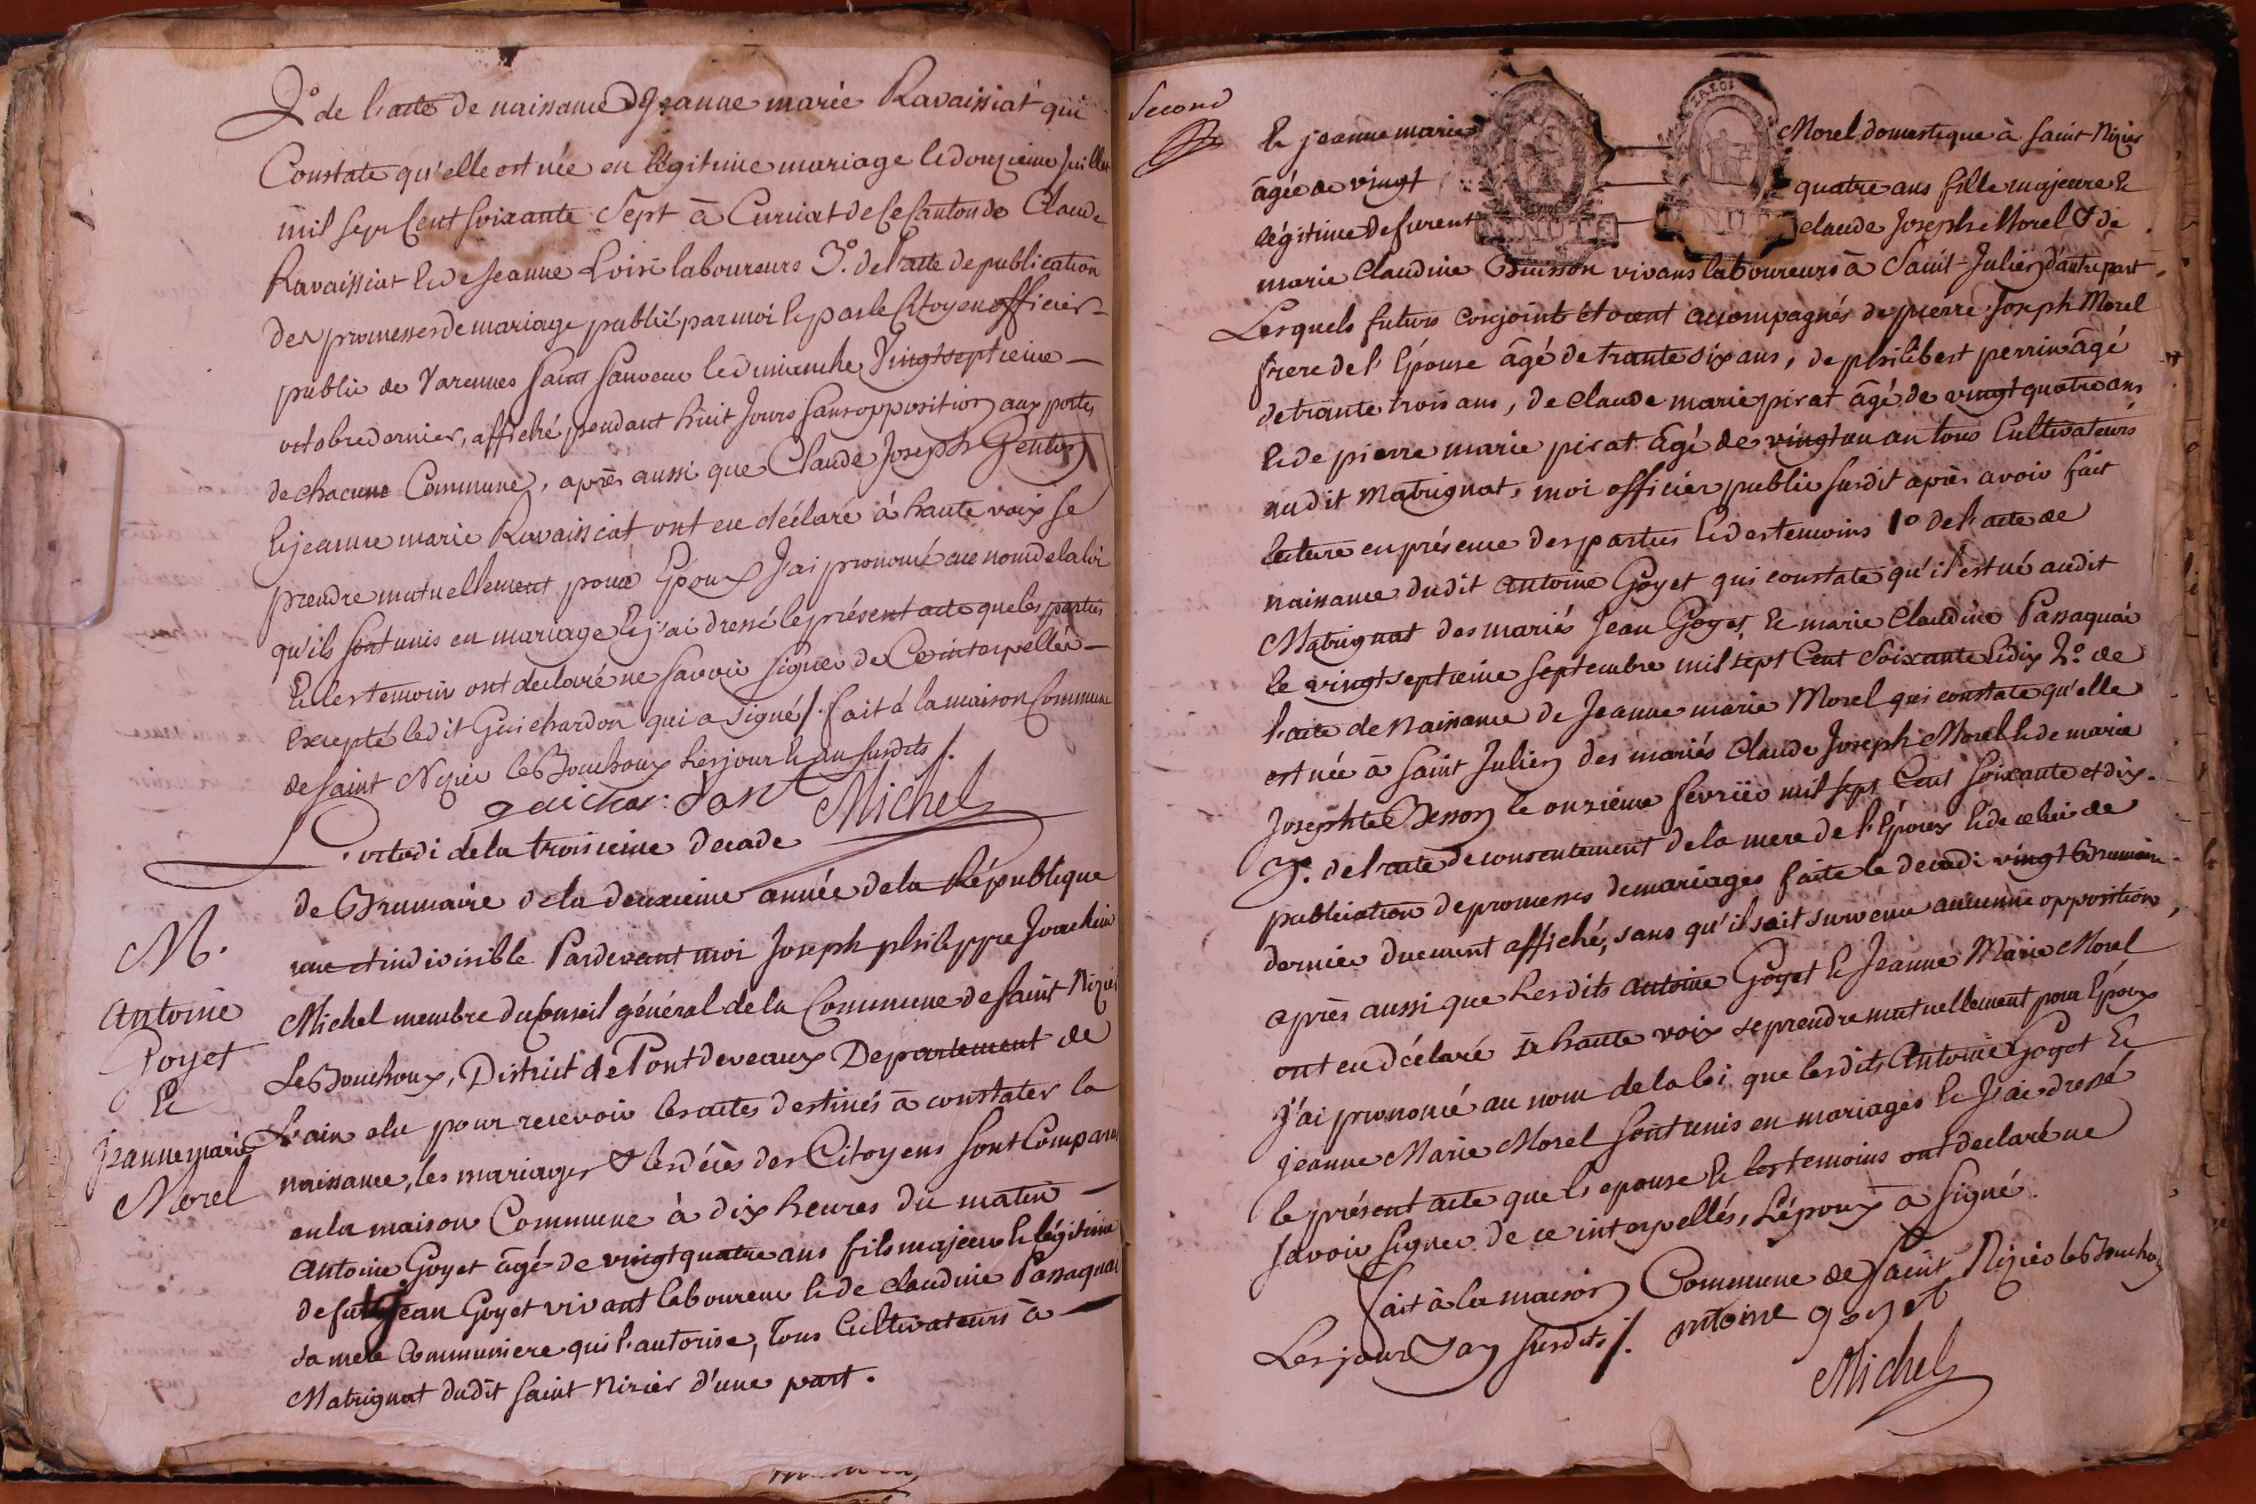 2º de l'acte de naissance de Jeanne marie Ravaissiat qui
Constate qu'elle est née en légitime mariage le douzieme Juillet
mil sept Cent soixante Sept à Curciat de ce Canton de Claude
Ravaissiat & de Jeanne Loisi laboureurs 3º. de l'acte de publication
des promesses de mariage publié par moi & par le Citoyen officier
public de Varennes Saint Sauveur le dimanche Vingt septieme
octobre dernier, affiché pendant huit Jours sans opposition aux portes
de chacune Commune, après aussi que Claude Joseph Genton
& jeanne marie Ravaissiat ont eu déclaré à haute voix se
prendre mutuellement pour Epoux J'ai prononcé au nom de la loi
qu'ils sont unis en mariage & j'ai dressé le présent acte que les parties
& les temoins ont declaré ne savoir signer de Ce interpellés
excepté ledit Guichardon qui a signé /. fait à la maison Commune
de Saint Nizier le Bouchoux les jour & an susdits /.
guichardon Michel
L'octodi de la troisieme decade
de Brumaire de la deuxieme année de la République
une et indivisible Pardevant moi Joseph philippe Joachim
Michel membre du Conseil général de la Commune de Saint Nizier
Le Bouchoux, District de Pontdeveaux Departement de
L'ain elu pour recevoir les actes destinés à constater la
naissance, les mariages & les décès des Citoyens sont Comparus
en la maison Commune à dix heures du matin
Antoine Goyet âgé de vingt quatre ans fils majeur & légitime
de fut Jean Goyet vivant laboureur & de claudine Passaquai
sa mere Communiere qui l'autorise, Tous Cultivateurs à
Matrignat dudit Saint Nizier d'une part.
M.
Antoine
Goyet
&
Jeanne marie
Morel
Second
& jeanne marie Morel domestique à Saint Nizier
âgée de vingt quatre ans fille majeure &
légitime de furent claude Joseph Morel & de
marie Claudine Buisson vivans laboureurs à Saint-Julien d'autre part
Lesquels futurs conjoints étoient accompagnés de pierre Joseph Morel
frere de l'Épouse âgé de trante six ans, de philibert perrin âgé
de trante trois ans, de Claude marie pirat âgé de vingt quatre ans
& de pierre marie pirat âgé de vingt un an tous Cultivateurs
audit Matrignat, moi officier public susdit après avoir fait
lecture en présence des parties & des temoins 1º de l'acte de
naissance dudit Antoine Goyet qui constate qu'il est né audit
Matrignat des mariés Jean Goyet & marie Claudine Passaquai
le vingt septieme septembre mil sept Cent Soixante & dix 2º. de
l'acte de naissance de Jeanne marie Morel qui constate qu'elle
est née à Saint Julien des mariés Claude Joseph Morel & de marie
Josephte Besson le onzieme fevrier mil sept Cent soixante et dix.
3º. de l'acte de consentement de la mere de l'Époux & de celui de
publication de promesses de mariages faite le decadi vingt Brumaire
dernier duement affiché, sans qu'il soit survenu aucunne opposition,
après aussi que lesdits Antoine Goyet & Jeanne Marie Morel
ont eu déclaré à haute voix se prendre mutuellement pour Époux
J'ai prononcé au nom de la loi que lesdits Antoine Goyet &
jeanne Marie Morel sont unis en mariages & J'ai dressé
le présent acte que l'epouse & les temoins ont declaré ne
savoir signer de ce interpellés, l'époux a signé.
fait à la maison Commune de Saint Nizier le Bouchoux
Les jour & an susdits /. antoine goyet
Michel